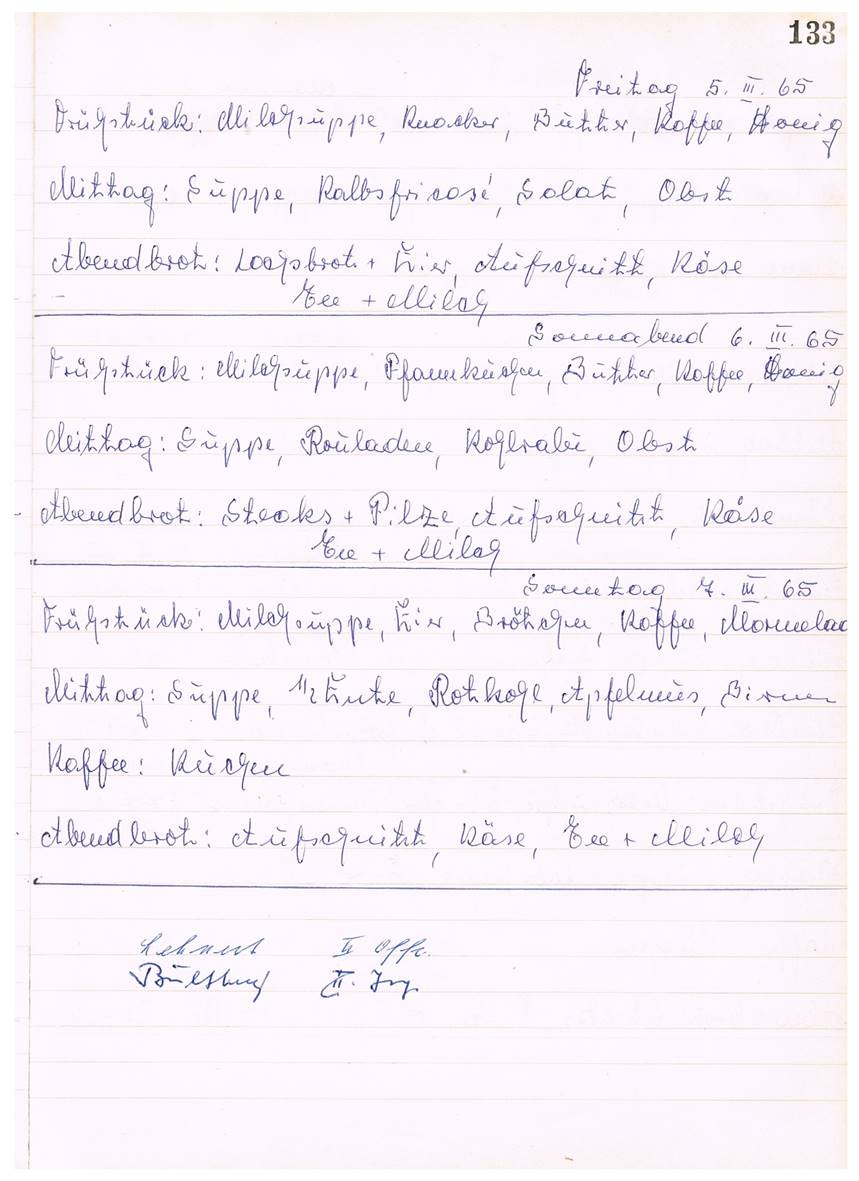 133
Freitag 5. III. 65
Frühstück: Milchsuppe, Knacker, Butter, Kaffee, Honig
Mittag: Suppe, Kalbsfricasé, Salat, Obst
Abendbrot: Lachsbrot + Eier, Aufschnitt, Käse
Tee + Milch
Sonnabend 6. III. 65
Frühstück: Milchsuppe, Pfannkuchen, Butter, Kaffee, Honig
Mittag: Suppe, Rouladen, Kohlrabi, Obst
Abendbrot: Steaks + Pilze, Aufschnitt, Käse
Tee + Milch
Sonntag 7. III. 65
Frühstück: Milchsuppe, Eier, Brötchen, Kaffee, Marmelad
Mittag: Suppe, 1/2 Ente, Rotkohl, Apfelmus, Birnen
Kaffee: Kuchen
Abendbrot: Aufschnitt, Käse, Tee + Milch
Lehnert II Offz.
II. Ing.